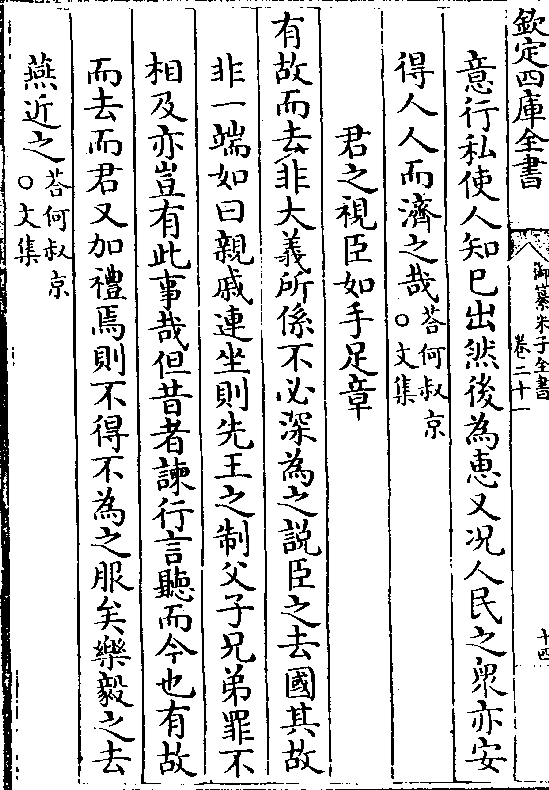 欽定四庫全書
御纂朱子全書
卷二十一
十四
意行私使人知已出然後為惠又况人民之衆亦安
得人人而濟之哉答何叔京○文集
君之視臣如手足章
有故而去非大義所係不必深為之説臣之去國其故
非一端如曰親戚連坐則先王之制父子兄弟罪不
相及亦豈有此事哉但昔者諫行言聽而今也有故
而去而君又加禮焉則不得不為之服矣樂毅之去
燕近之答何叔京○文集